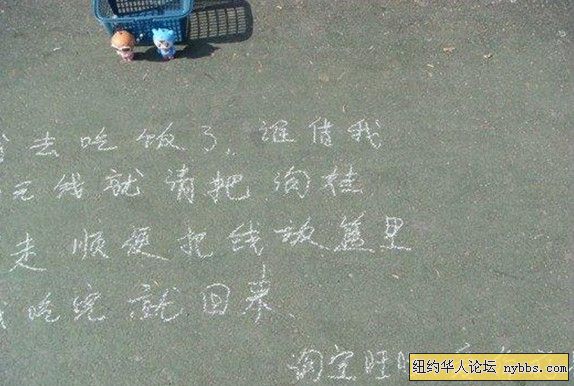 去吃饭了,谁借我
元钱就请把
走顺便把钱放篮里
吃完就回来、
淘宝旺旺
纽约华人论坛 nybbs.com